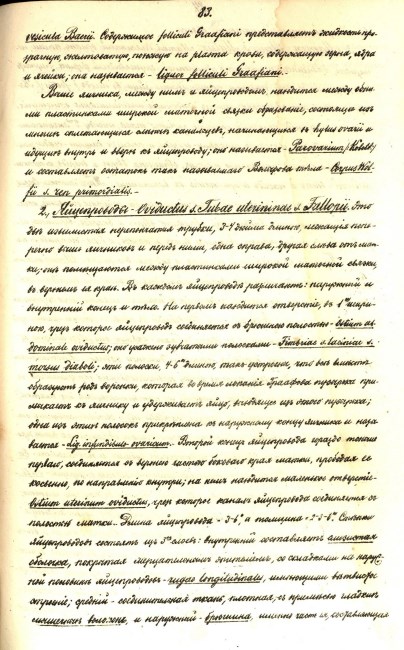 83.
vesicula Baerii. Содержимое folliculi Graafiani представляетъ жидкость про-
зрачную, желтоватую, похожую на plasma крови, содержащую зерна, ядра
и ячейки; она называется - liquor folliculi Graafiani.
Выше яичника, между нимъ и яйцепроводомъ находится между обѣи-
ми пластинками широкой маточной связки образованіе, состоящее изъ
многихъ сплетающихся канальцевъ, начинающихся въ hylus ovarii и
идущихъ внутрь и вверхъ къ яйцепроводу; это называется - Parovarium (Kobelt)
и составляетъ остатокъ такъ называемаго Вольфова тѣла - Corpus Wol-
fii s. ren primordialis.
2, Яйцепроводы - Oviductus s. Tubae uterininae s. Fallopii. Это
двѣ извилистыя перепончатыя трубки, 3-4 дюйма длиною, лежащія попе-
речно выше яичниковъ и передъ ними, одна справа, другая слѣва отъ мат-
ки; онѣ помѣщаются между пластинками широкой маточной связки,
въ верхнемъ ея краѣ. Въ каждомъ яйцепроводѣ различаютъ: наружный и
внутренній конецъ и тѣло. На первомъ находится отверстіе, въ 1''' шири-
ною, чрезъ которое яйцепроводъ соединяется съ брюшною полостью - ostium ab-
dominale oviductus; оно усажено зубчатыми полосками - Fimbriae s. laciniae s.
morsus diaboli; эти полоски, 4-6''' длиною, такъ устроены, что всѣ вмѣстѣ
образуютъ родъ воронки, которая во время лопанія Граафова пузырька при-
мыкаетъ къ яичнику и удерживаетъ яйцо, выходящее изъ этого пузырька;
одна изъ этихъ полосокъ прикрѣплена къ наружному концу яичника и назы-
вается - Lig. infundibulo-ovaricum. Второй конецъ яйцепровода гораздо тоньше
перваго, соединяется съ верхнею частью боковаго края матки, прободая ее
косвенно, по направленію внутри; на немъ находится маленькое отверстіе -
ostium uterinum oviductus, чрезъ которое каналъ яйцепровода соединяется съ
полостью матки. Длина яйцепровода - 3-6'' и толщина - 2-3-6'''. Стѣнки
яйцепроводовъ состоятъ изъ 3хъ слоевъ: внутренній составляетъ слизистая
оболочка, покрытая мерцательнымъ эпителіемъ, со складками на
половинѣ яйцепроводовъ - rugae longitudinales, имѣющими
строеніе; средній - соединительная ткань, плотная, съ примѣсью гладкихъ
мышечныхъ волоконъ, и наружный - брюшина, именно часть ея, составляющая